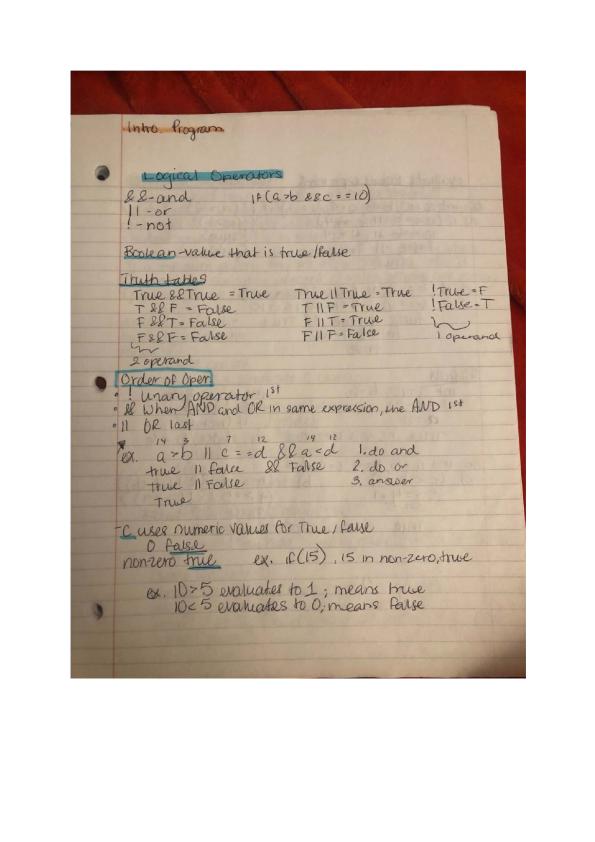 Intro. Program
Logical Operators
&&-and if(a>b &&c==10)
||-or
!-not
Boolean-value that is true/false
Truth tables
True &&True = True True||True = True !True = F
T && F = False T||F = True !False = T
F &&T = False F||T = True
F&&F = False F||F = False 1 operand
2 operand
Order of Oper.
• ! unary operator 1st
• && When AND and OR in same expression, the AND 1st
• || OR last
14 3 7 12 14 12
ex. a>b || c==d && a<d 1. do and
true || false && False 2. do or
true || False 3. answer
True
-C uses numeric values for True/false
0 false
nonzero true ex. if(15), 15 in non-zero, true
ex. 10>5 evaluates to 1; means true
10<5 evaluates to 0; means false